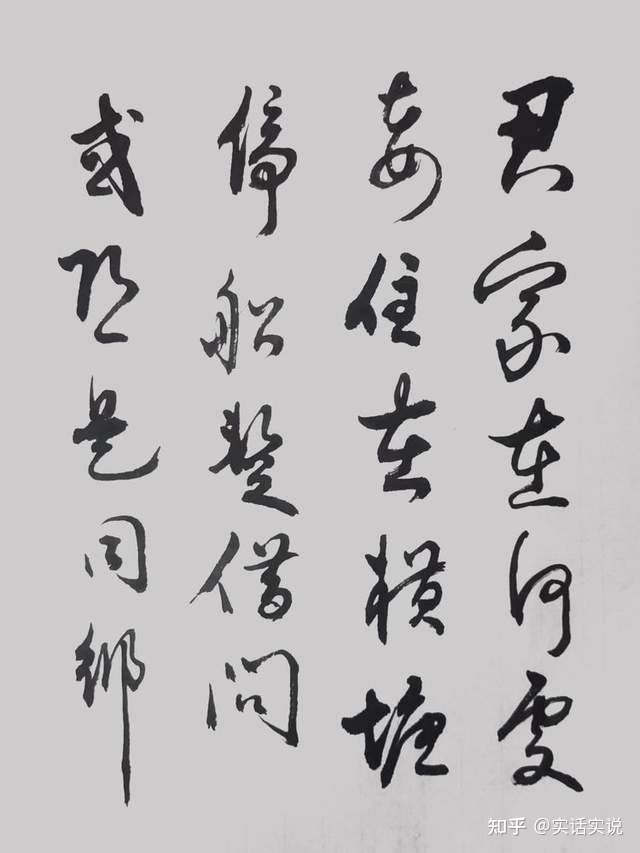 君家在何處
妾住在横塘
停船暫借問
或恐是同鄉
知乎 @实话实说